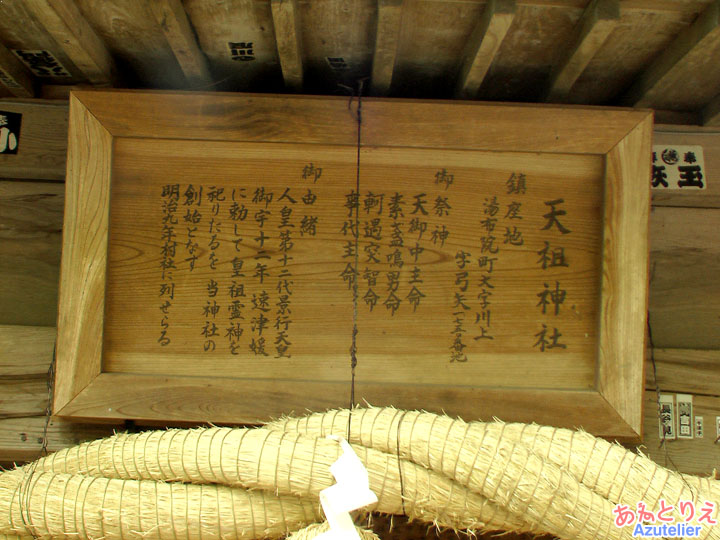 天祖神社
鎮座地
湯布院町大字川上
字弓矢一五一五番地
御祭神
天御中主命
素盞鳴男命
軻遇突智命
事代主命
御由緒
人皇第十二代景行天皇
御宇十二年速津媛
に勅して皇祖霊神を
祀りたるを当神社の
創始となす
明治九年村社に列せらる
あねとりえ
Azutelier